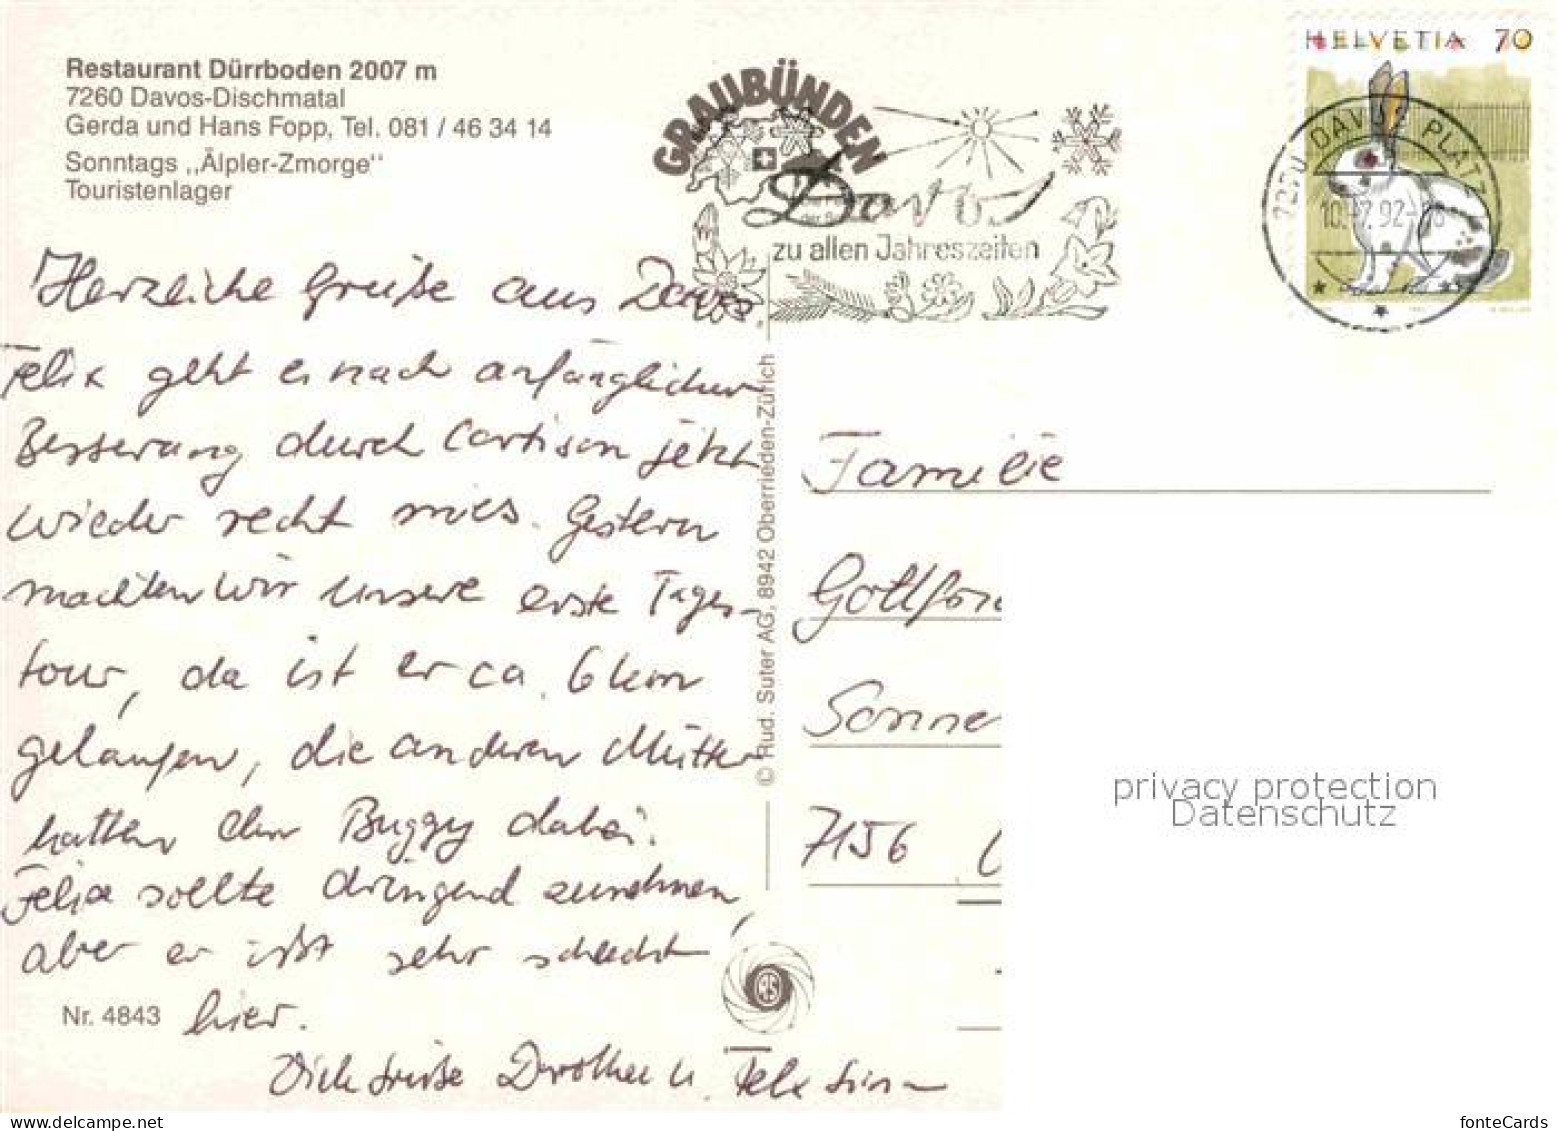 Restaurant Dürrboden 2007 m
7260 Davos-Dischmatal
Gerda und Hans Fopp, Tel. 081 / 46 34 14
Sonntags ,,Älpler-Zmorge''
Touristenlager
GRAUBÜNDEN
Davos
zu allen Jahreszeiten
HELVETIA 70
7270 DAVOS PLATZ
92
Herzliche Grüße aus Davos.
Felix geht es nach anfänglicher
Besserung durch Cortison jetzt
wieder recht mies. Gestern
machten wir unsere erste Tages-
tour, da ist er ca. 6 km
gelaufen, die anderen Mütter
hatten den Buggy dabei.
Felix sollte dringend zunehmen,
aber er ißt sehr schlecht
hier.
Grüße Dorothee u. Felix
Nr. 4843
© Rud. Suter AG, 8942 Oberrieden-Zürich
RS
Familie
Sonne
7156
privacy protection
Datenschutz
fonteCards